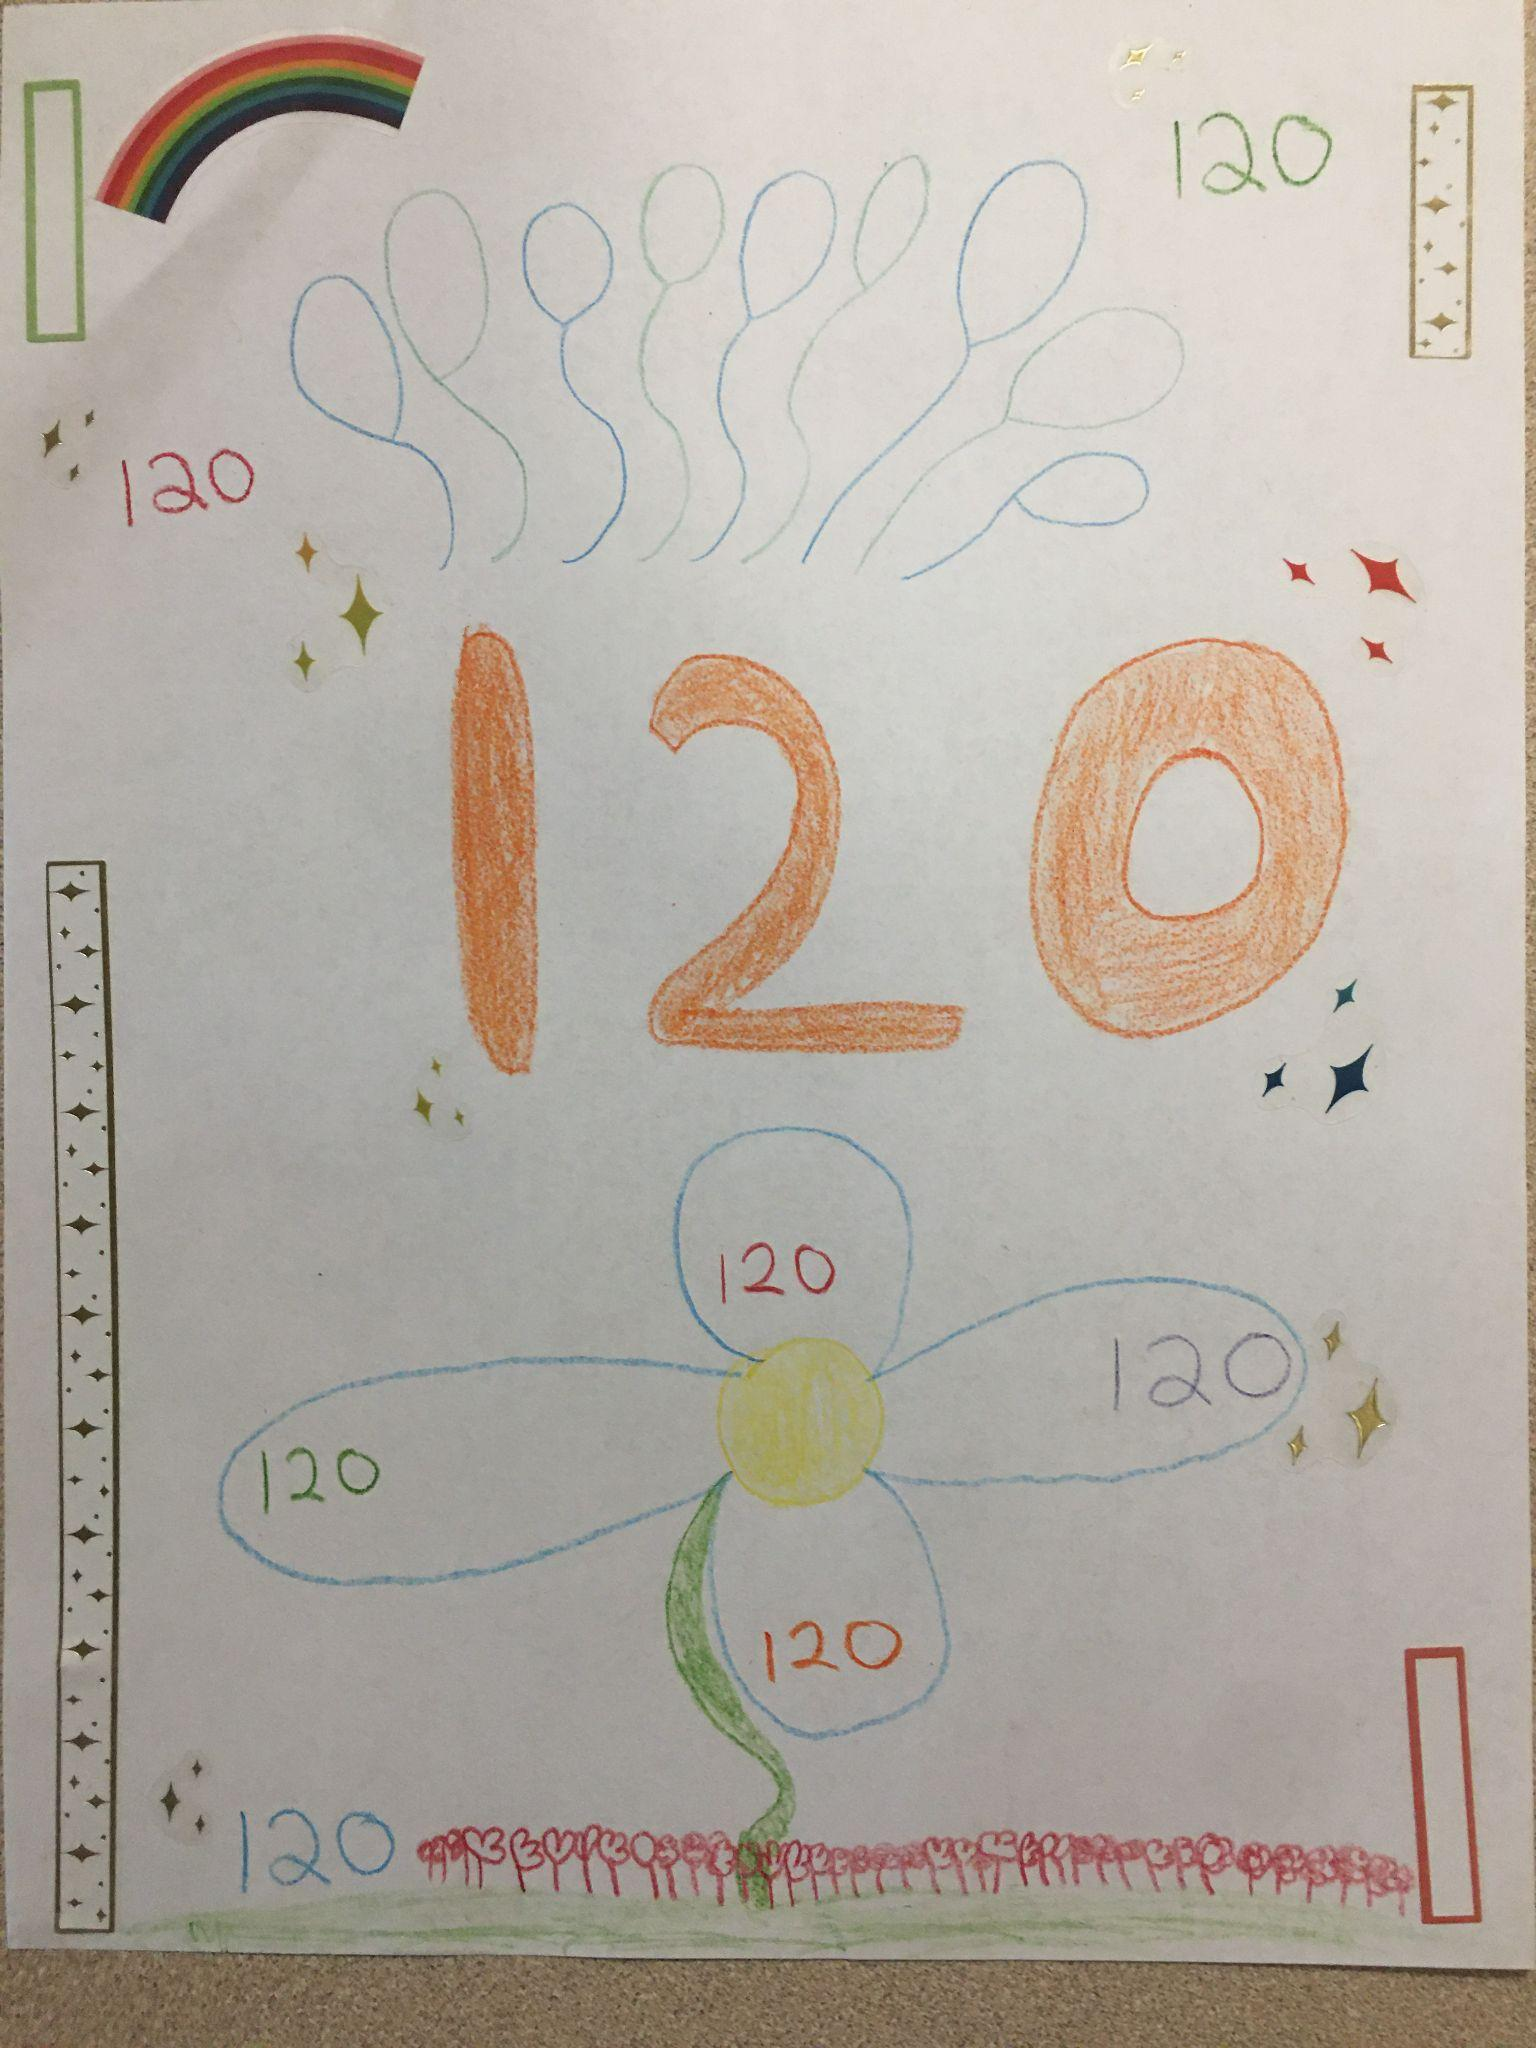 120
120
120
120
120
120
120
120